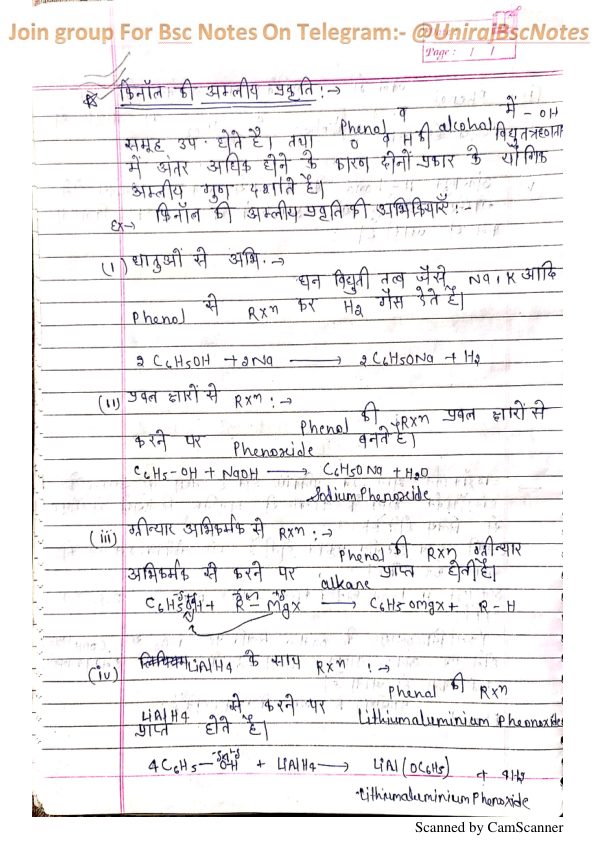 Join group For Bsc Notes On Telegram:- @UnirajBscNotes
Page: / /
फिनॉल की अम्लीय प्रकृति :→
Phenol व alcohal में -OH
समूह उप. होते है। तथा O व H की विद्युतऋणता
में अंतर अधिक होने के कारण दोनों प्रकार के यौगिक
अम्लीय गुण दर्शाते है।
Ex→ फिनॉल की अम्लीय प्रकृति की अभिक्रियाएँ :-
(i) धातुओं से अभि. :→
धन विद्युती तत्व जैसे Na, K आदि
Phenol से Rxn कर H2 गैस देते है।
2 C6H5OH + 2Na ⟶ 2 C6H5ONa + H2
(ii) प्रबल क्षारों से Rxn :→
Phenol की Rxn प्रबल क्षारों से
करने पर Phenoxide बनते है।
C6H5-OH + NaOH ⟶ C6H5ONa + H2O
Sodium Phenoxide
(iii) ग्रीन्यार अभिकर्मक से Rxn :→
Phenol की Rxn ग्रीन्यार
अभिकर्मक से करने पर alkane प्राप्त होती है।
C6H5OH + R-Mgx ⟶ C6H5omgx + R-H
(iv) LiAlH4 के साथ Rxn :→
Phenol की Rxn
LiAlH4 से करने पर Lithiumaluminium Pheonoxide
प्राप्त होते है।
4C6H5-OH + LiAlH4 ⟶ LiAl(OC6H5) + 4H2
Lithiumaluminium Phenoxide
Scanned by CamScanner